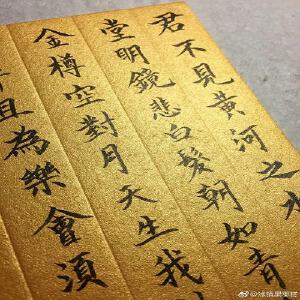 君不見黃河之水
堂明鏡悲白髮朝如青
金樽空對月天生我
且為樂會須